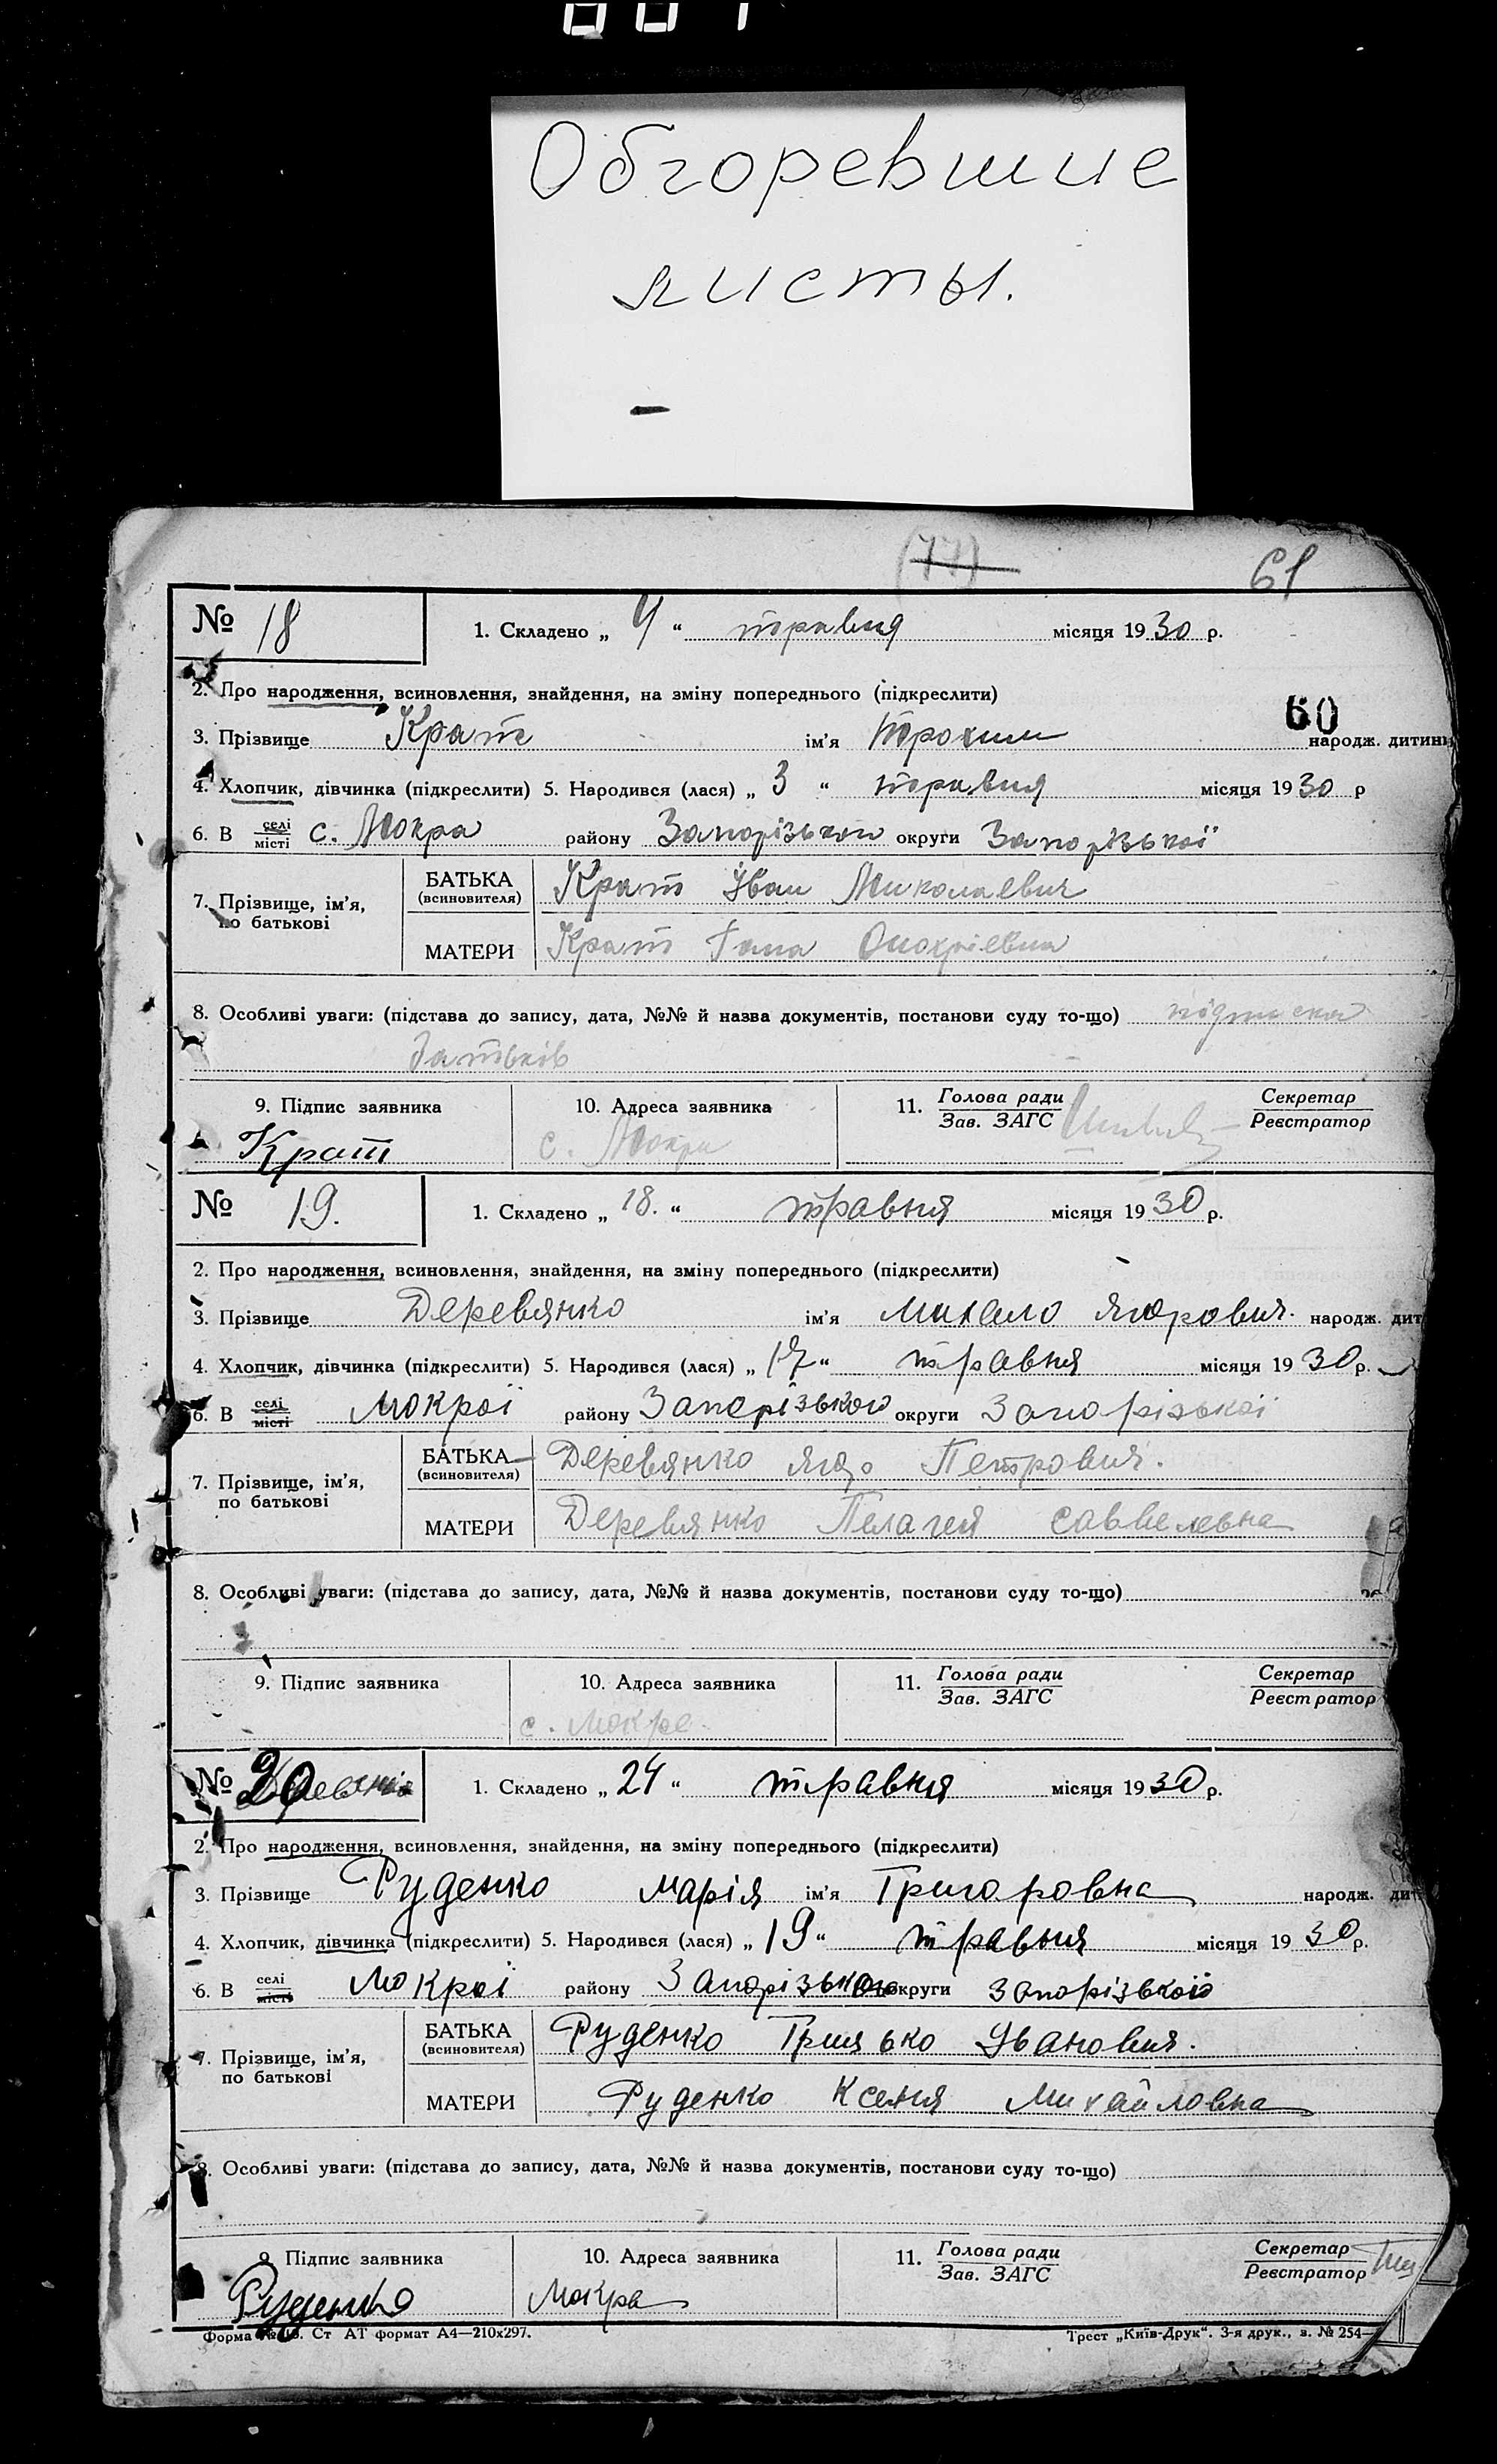 Обгоревшие
листы.
(77)
61
№ 18
1. Складено „ 4 “ травня місяця 1930 р.
2. Про народження, всиновлення, знайдення, на зміну попереднього (підкреслити)
60
3. Прізвище Крат ім'я Трохим народж. дитини
4. Хлопчик, дівчинка (підкреслити) 5. Народився (лася) „ 3 “ травня місяця 1930 р
6. В селі місті с. Мокра району Запорізького округи Запорізької
7. Прізвище, ім'я, по батькові
БАТЬКА (всиновителя) Крат Іван Миколаевич
МАТЕРИ Крат Гана Онохріевна
8. Особливі уваги: (підстава до запису, дата, №№ й назва документів, постанови суду то-що) підписка
батьків
9. Підпис заявника 10. Адреса заявника 11. Голова ради Зав. ЗАГС Секретар Реєстратор
Крат с. Мокра
№ 19.
1. Складено „ 18. “ травня місяця 1930 р.
2. Про народження, всиновлення, знайдення, на зміну попереднього (підкреслити)
3. Прізвище Деревянко ім'я Михайло Ягорович. народж. дит
4. Хлопчик, дівчинка (підкреслити) 5. Народився (лася) „ 17 “ травня місяця 1930 р.
6. В селі місті Мокрої району Запорізького округи Запорізької
7. Прізвище, ім'я, по батькові
БАТЬКА (всиновителя) Деревянко Ягор Петрович.
МАТЕРИ Деревянко Пелагея Саввелевна
8. Особливі уваги: (підстава до запису, дата, №№ й назва документів, постанови суду то-що)
9. Підпис заявника 10. Адреса заявника 11. Голова ради Зав. ЗАГС Секретар Реєстратор
с. Мокре
№ 20
1. Складено „ 24 “ травня місяця 1930 р.
2. Про народження, всиновлення, знайдення, на зміну попереднього (підкреслити)
3. Прізвище Руденко Марія ім'я Григоровна народж. дит
4. Хлопчик, дівчинка (підкреслити) 5. Народився (лася) „ 19 “ травня місяця 1930 р.
6. В селі місті Мокрої району Запорізького округи Запорізької
7. Прізвище, ім'я, по батькові
БАТЬКА (всиновителя) Руденко Грицько Iванович.
МАТЕРИ Руденко Ксения Михайловна
8. Особливі уваги: (підстава до запису, дата, №№ й назва документів, постанови суду то-що)
9. Підпис заявника 10. Адреса заявника 11. Голова ради Зав. ЗАГС Секретар Реєстратор
Руденко Мокра
Форма Ст АТ формат А4—210x297. Трест „Київ-Друк“. 3-я друк., з. № 254—